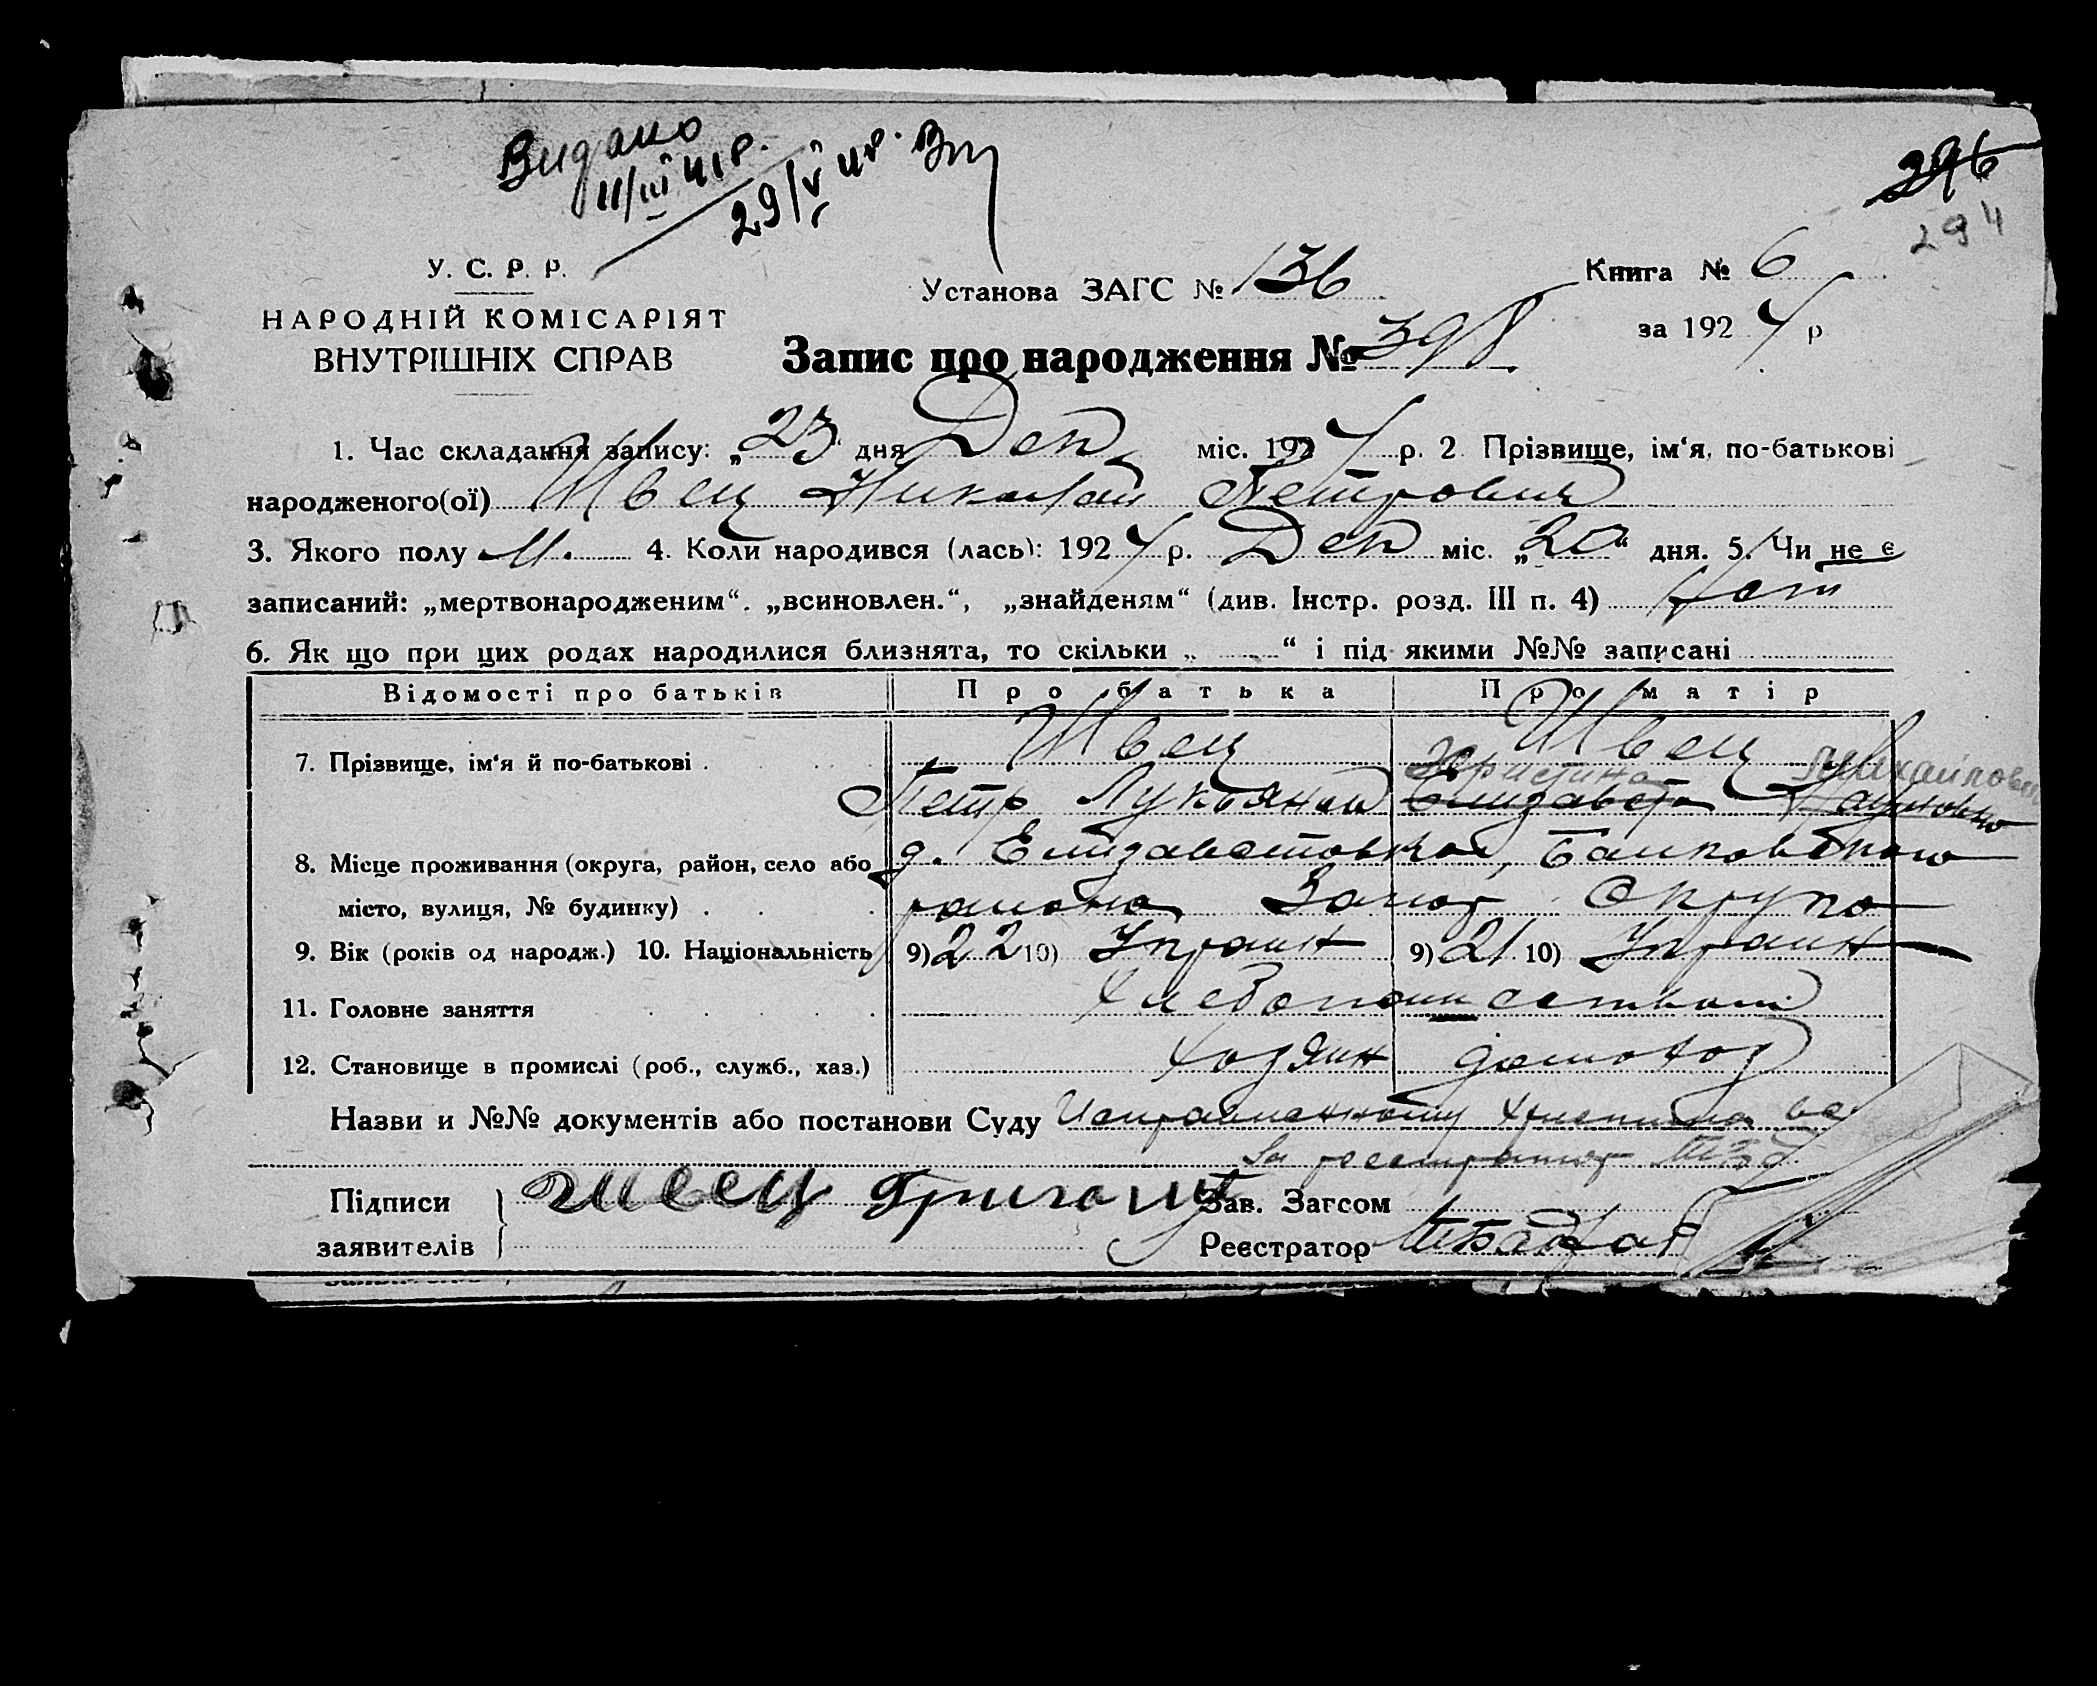 Видано
11/III 41 р.
29/V 41 р.
296
294
У. С. Р. Р.
НАРОДНІЙ КОМІСАРІЯТ
ВНУТРІШНІХ СПРАВ
Установа ЗАГС № 136
Книга № 6
за 192 4 р
Запис про народження № 398
1. Час складання запису: „23“ дня Дек міс. 192 4 р. 2. Прізвище, ім‘я, по-батькові
народженого(ої) Швец Николай Петрович
3. Якого полу М. 4. Коли народився (лась): 192 4 р. Дек міс. „20“ дня. 5. Чи не є
записаний: „мертвонародженим“. „всиновлен.“, „знайденям“ (див. Інстр. розд. III п. 4) Нет
6. Як що при цих родах народилися близнята, то скільки „ “ і під якими №№ записані
Відомості про батьків Про батька Про матір
7. Прізвище, ім‘я й по-батькові . Швец Швец
Христина Михайловна
Петр Лукьянов Елизавета Наумовна
8. Місце проживання (округа, район, село або д. Елизаветовка,
місто, вулиця, № будинку) . района Запор Округа
9. Вік (років од народж.) 10. Національність 9) 22 10) Украин 9) 21 10) Украин
11. Головне заняття Хлебопашеством
12. Становище в промислі (роб., служб., хаз.) хозяин домохоз
Назви и №№ документів або постанови Суду Исправленному Христина
За
Підписи Швец Григорий Зав. Загсом
заявителів Реєстратор